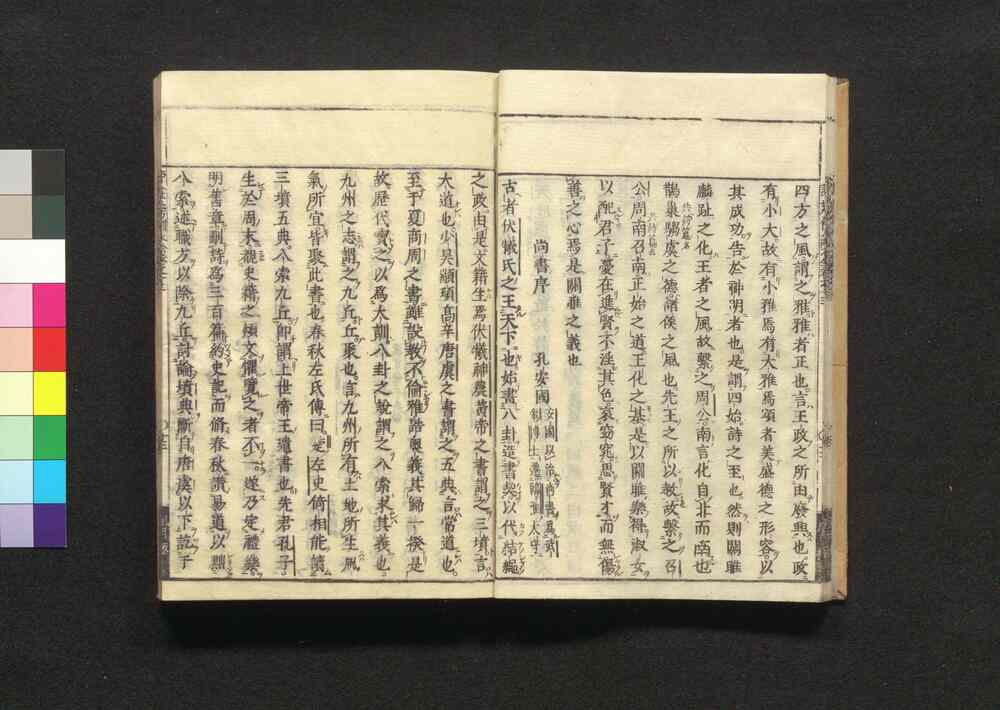 四方之風謂之雅雅者正也言王政之所由廢興也政
有小大故有小雅焉有大雅焉頌者美盛德之形容以
其成功告於神明者也是謂四始詩之至也然則關雎
麟趾之化王者之風故繫之周公南言化自北而南也
鵲巢騶虞之德諸侯之風也先王之所以教故繫之召
公周南召南正始之道王化之基是以關雎樂得淑女
以配君子憂在進賢不淫其色哀窈窕思賢才而無傷
善之心焉是關雎之義也
尚書序 孔安國
古者伏犧氏之王天下也始畫八卦造書契以代結繩
之政由是文籍生焉伏犧神農黃帝之書謂之三墳言
大道也少昊顓頊高辛唐虞之書謂之五典言常道也
至于夏商周之書雖設教不倫雅誥奧義其歸一揆是
故歷代寶之以爲大訓八卦之說謂之八索求其義也
九州之志謂之九丘丘聚也言九州所有土地所生風
氣所宜皆聚此書也春秋左氏傳曰楚左史倚相能讀
三墳五典八索九丘卽謂上世帝王遺書也先君孔子
生於周末覩史籍之煩文懼覽之者不一遂乃定禮樂
明舊章刪詩爲三百篇約史記而脩春秋讚易道以黜
八索述職方以除九丘討論墳典斷自唐虞以下訖于